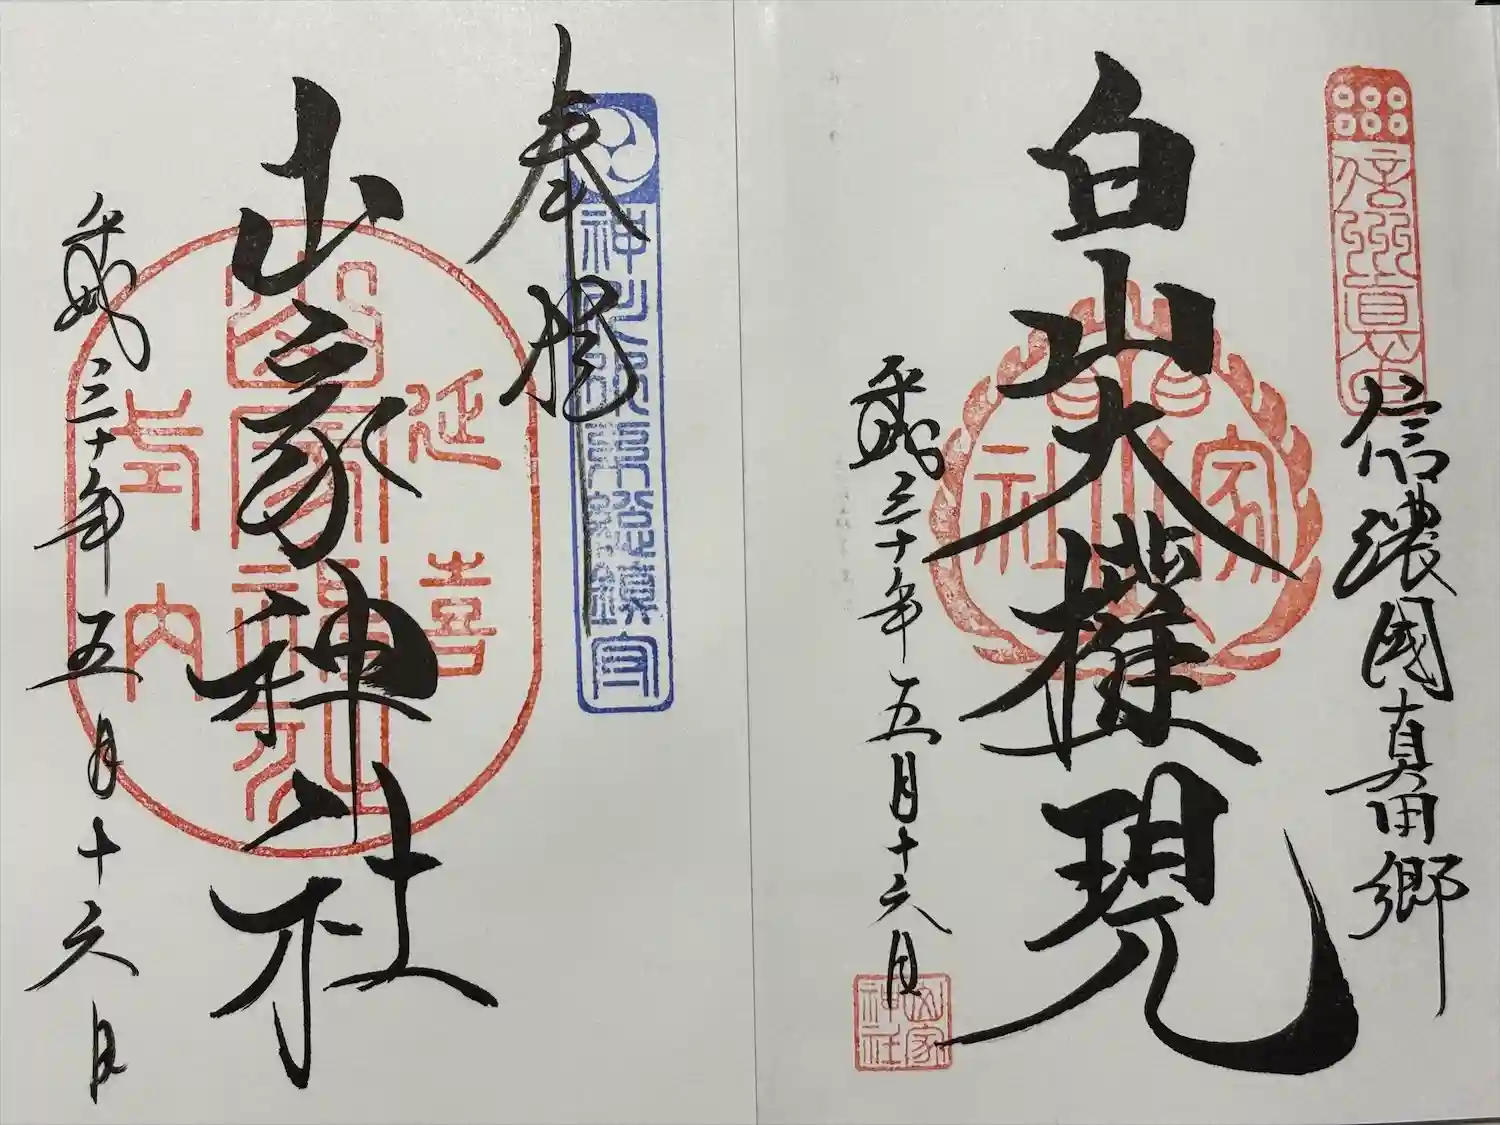 信州真田
信濃國真田郷
白山大権現
平成三十年五月十六日
山家神社
奉拝
山家神社
延喜
式内
山家神社
平成三十年五月十六日